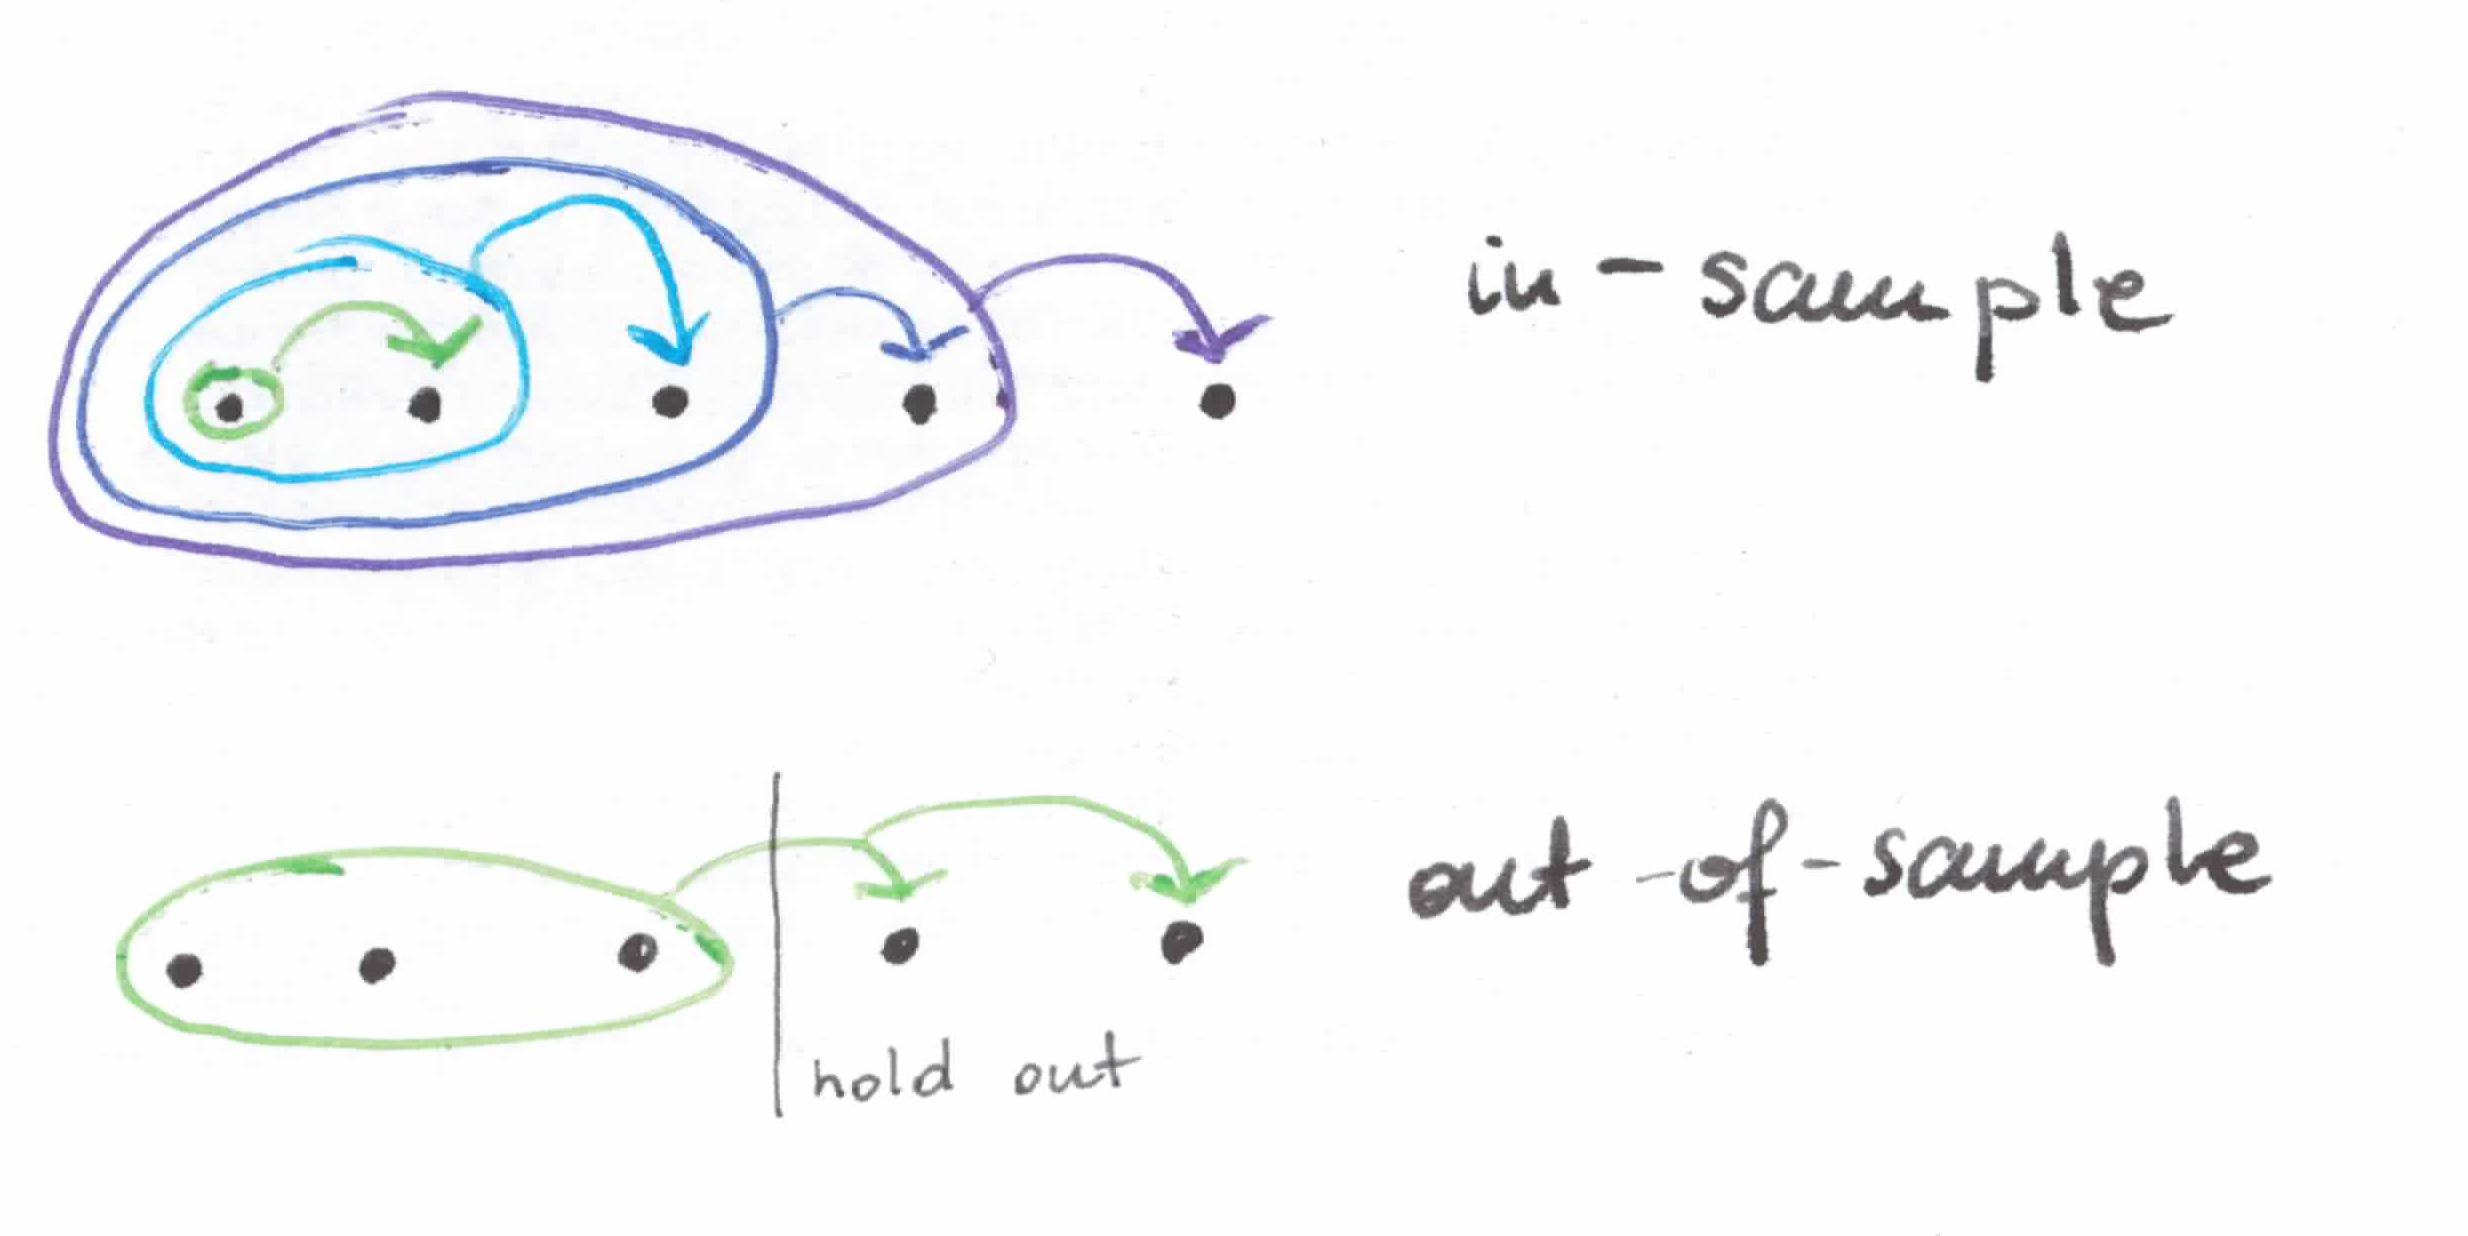 in-sample
out-of-sample
hold out